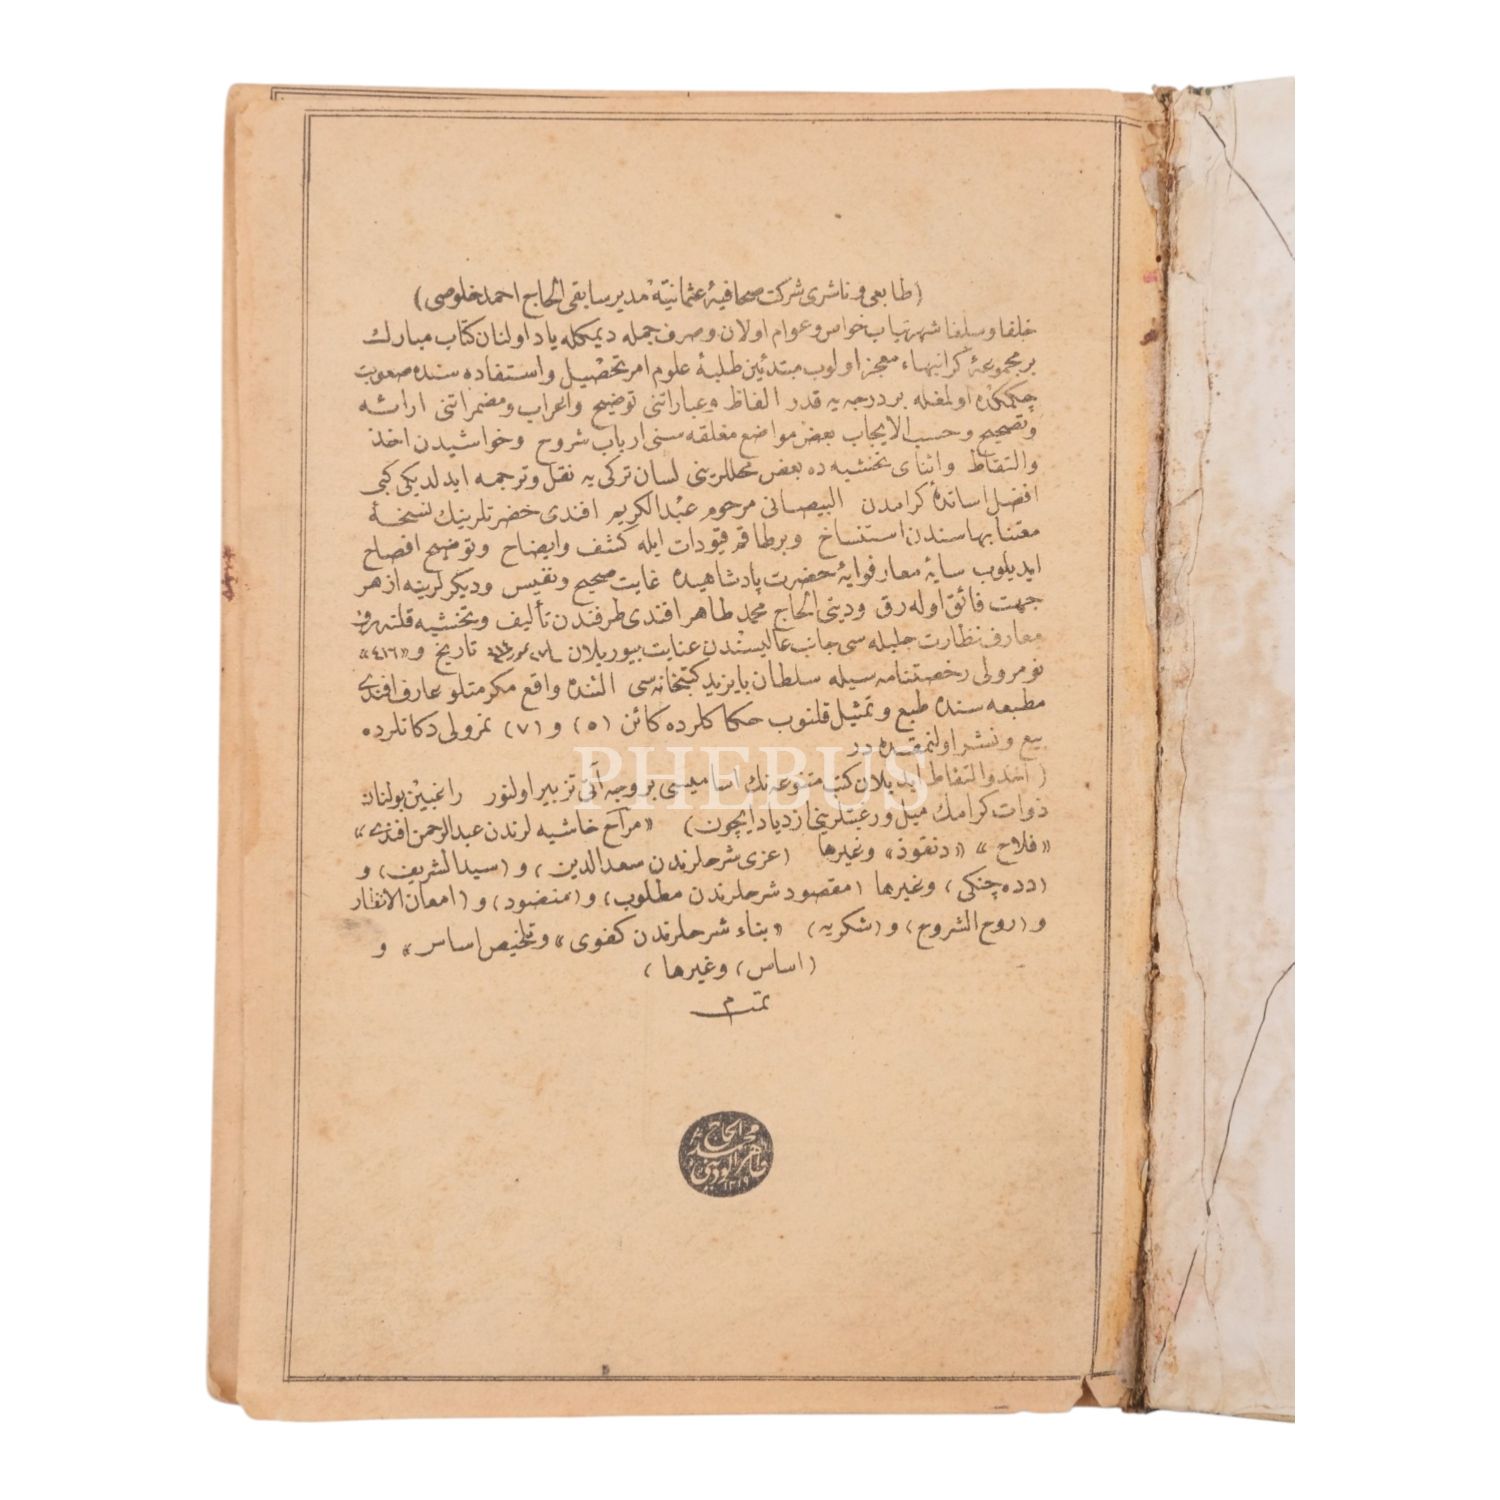 (طابعی و ناشری شرکت صحافیهٔ عثمانیه مدیر سابقی الحاج احمد خلوصی)
خلفا و سلفا شهرتیاب خواص و عوام اولان و صرف جمله دیمکله یاد اولنان کتاب مبارک
بر مجموعهٔ کرانبهاء معجز اولوب مبتدئین طلبهٔ علوم امر تحصیل و استفاده سنده صعوبت
چکمکده اولمغله بر درجه یه قدر الفاظ و عباراتنی توضیح و اعراب و مضمراتنی ارائه
و تصحیح و حسب الایجاب بعض مواضع مغلقه سنی ارباب شروح و حواشیدن اخذ
والتقاط و اثنای تحشیه ده بعض محللرینی لسان ترکی یه نقل و ترجمه ایدلدیکی کبی
افضل اساتذهٔ کرامدن البیصانی مرحوم عبدالکریم افندی حضرتلرینک نسخهٔ
معتنا بهاسندن استنساخ و برطاقم قیودات ایله کشف و ایضاح و توضیح افصاح
ایدیلوب سایهٔ معارفوایهٔ حضرت پادشاهیده غایت صحیح و نفیس و دیکرلرینه از هر
جهت فائق اوله رق ودینی الحاج محمد طاهر افندی طرفندن تألیف و تحشیه قلنه رق
معارف نظارت جلیله سی جانب عالیسندن عنایت بیوریلان تاریخ و «٤١٦»
نومرولی رخصتنامه سیله سلطان بایزید کتبخانه سی التنده واقع مکرمتلو عارف افندی
مطبعه سنده طبع و تمثیل قلنوب حکاکلرده کائن (٥) و (٧) نمرولی دکانلرده
بیع و نشر اولنمقده در
PHEBUS
(اخذ والتقاط ایدیلان کتب متنوعه نک اسامیسی بر وجه آتی تزبیر اولنور راغبین بولنان
ذوات کرامک میل و رغبتلرینی ازدیاد ایچون) «مراح حاشیه لرندن عبدالرحمن افندی»
«فلاح» «دنقوز» و غیرها (عزی شرحلرندن سعدالدین) و (سید الشریف) و
(دده چنکی) و غیرها (مقصود شرحلرندن مطلوب) و (منضود) و (امعان الانظار
و (روح الشروح) و (شکریه) «بناء شرحلرندن کفوی» و تلخیص اساس» و
(اساس) و غیرها)
تمت م
الحاج محمد طاهر الودینی